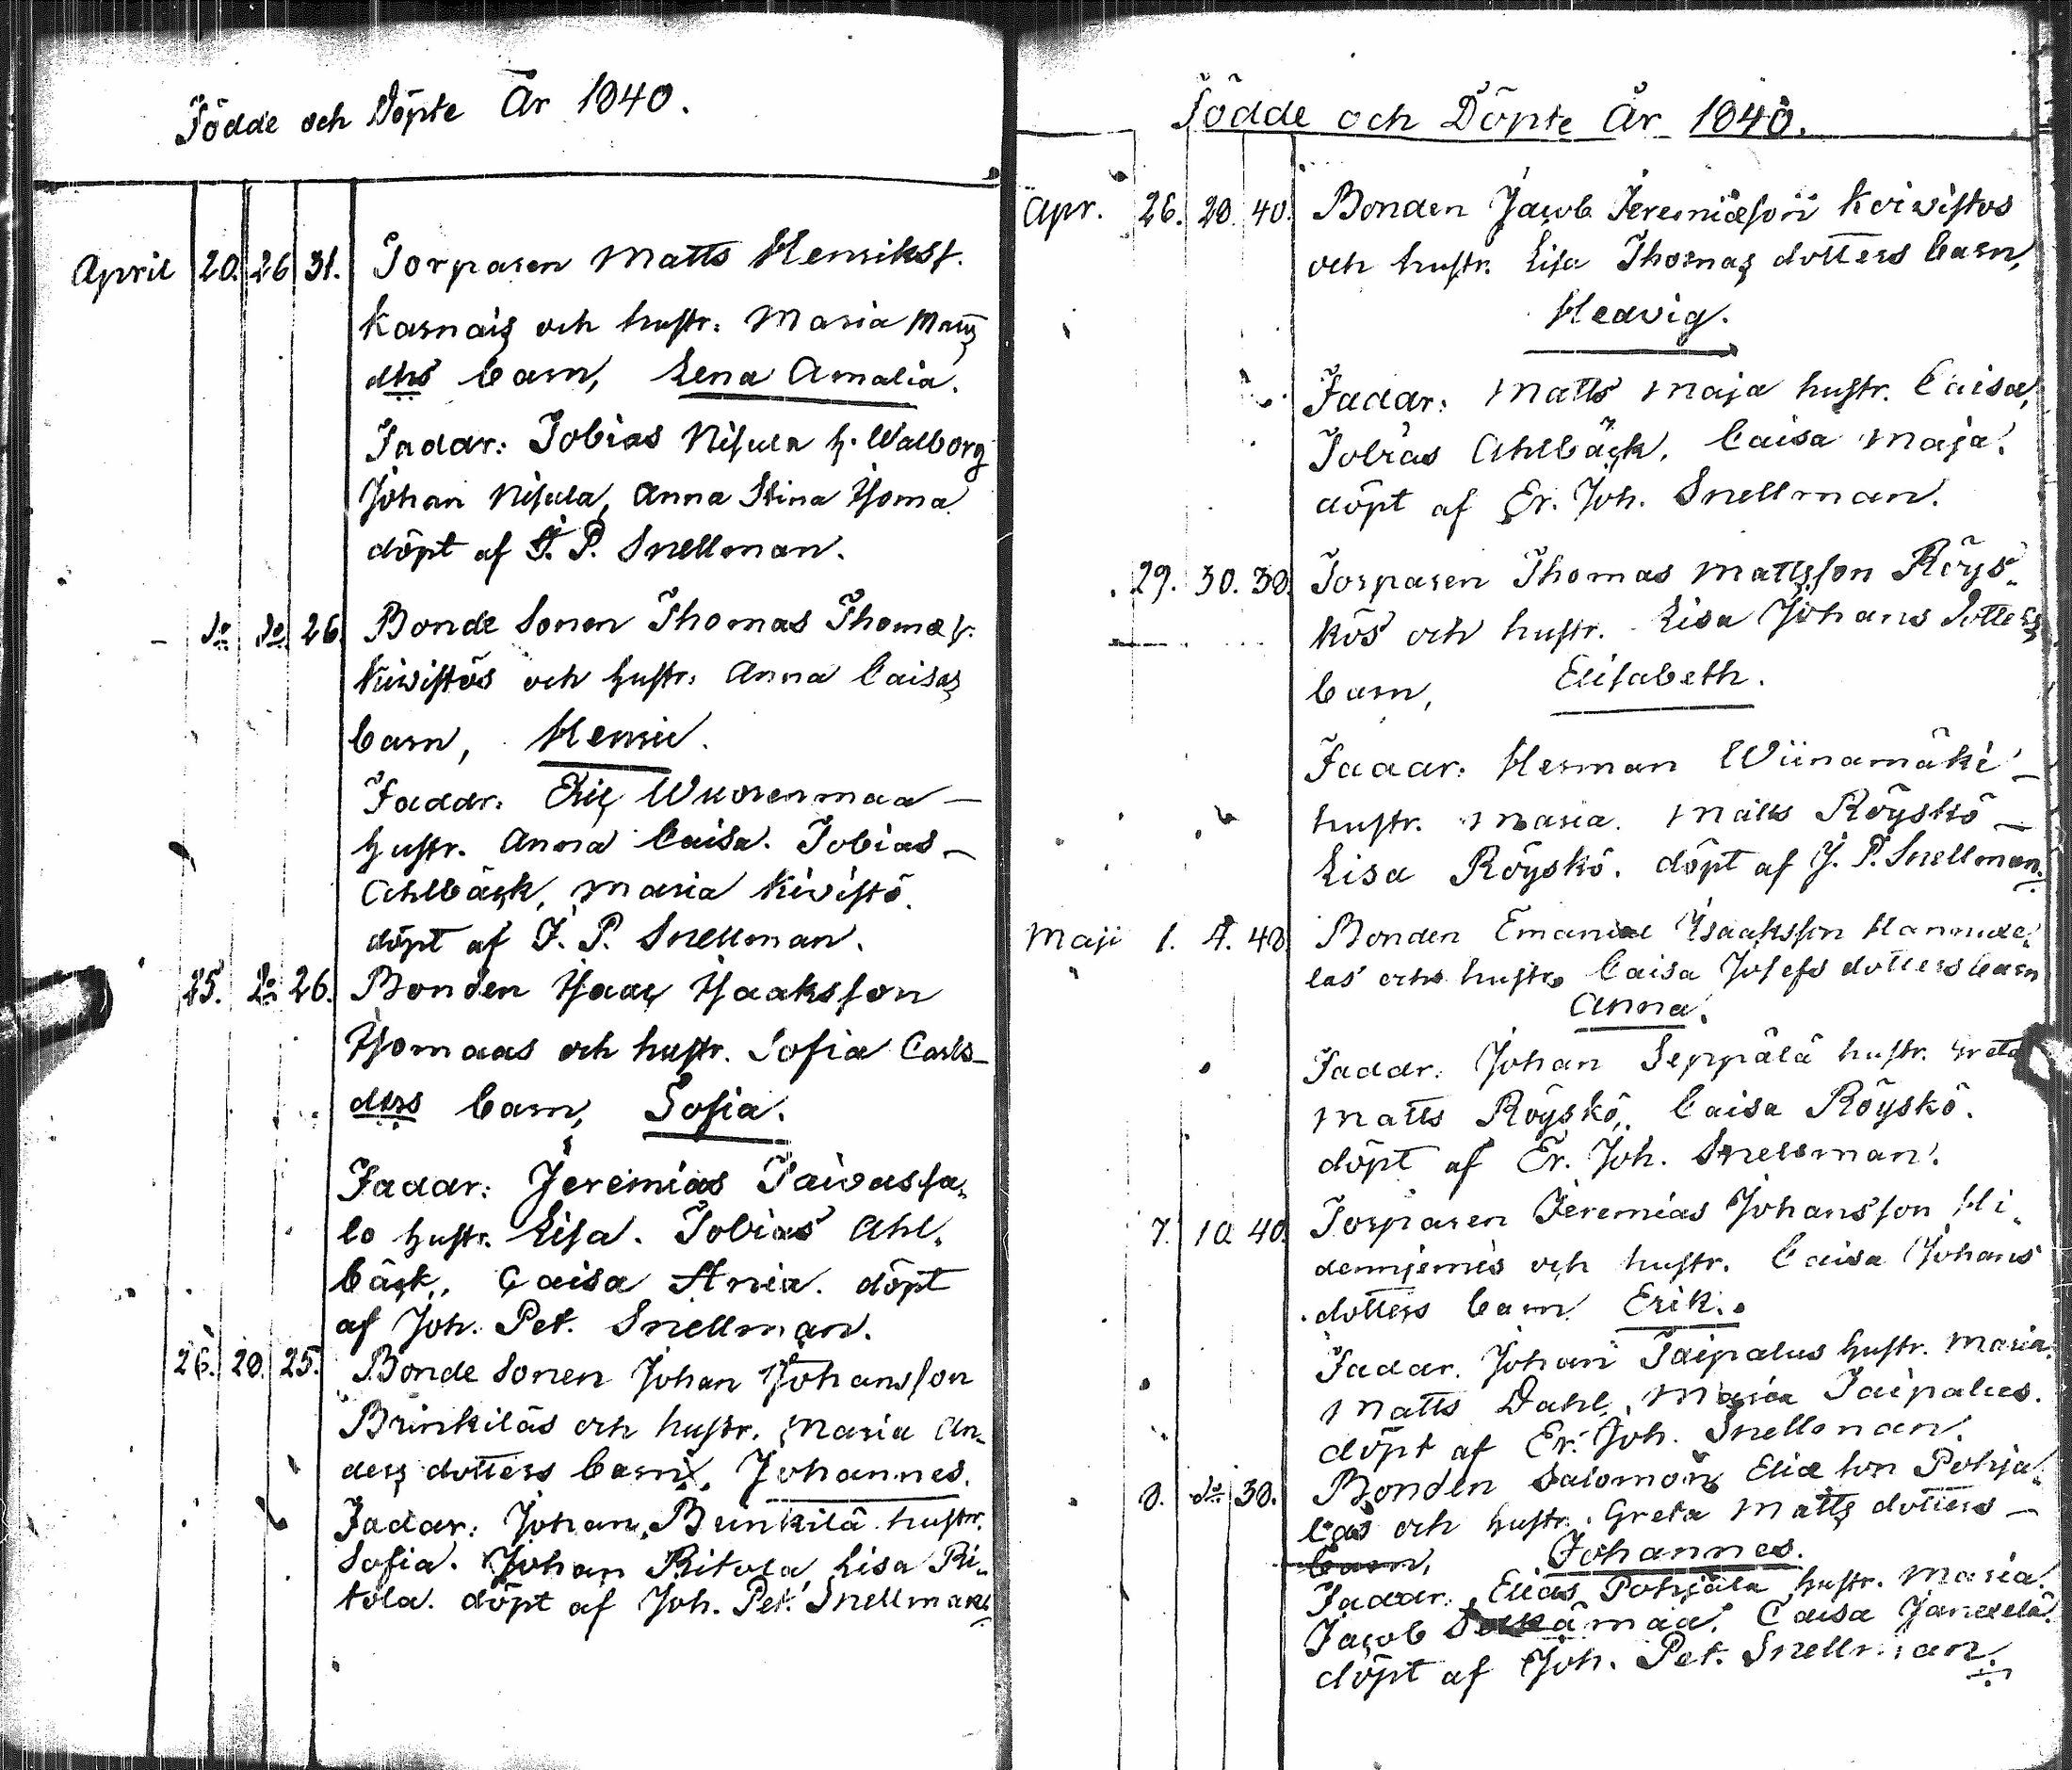 Födde och Döpte År 1840.
April 20. 26 31. Torparen Matts Henriksf.
Karnais och hustr. Maria Matts
dhs barn, Lena Amalia.
Faddr: Tobias Nisula h. Walborg
Johan Nisula, Anna Stina Isoma
döpt af J. P. Snellman.
- do do 26. Bonde Sonen Thomas Thomæf.
Kiwistös och hustr. Anna Caisas
barn, Henric.
Faddr. Eric Wuorenmaa –
hustr. Anna Caisa. Tobias –
Ahlbäck, Maria Kiwistö.
döpt af J. P. Snellman.
25. do 26. Bonden Isaac Isaaksson
Isomaas och hustr. Sofia Carls–
ders barn, Sofia.
Faddr: Jeremias Taivassa-
lo hustr. Lisa. Tobias Ahl-
bäck, Caisa Stina. döpt
af Joh. Pet. Snellman.
26. 28. 25. Bonde Sonen Johan Johansson
Brinkiläs och hustr. Maria An-
ders dotters barn, Johannes.
Faddr: Johan Brinkilä hustr.
Sofia. Johan Ritola Lisa Ri-
tola. döpt af Joh. Pet. Snellman
Födde och Döpte År 1840.
Apr. 26. 28. 40. Bonden Jacob Jeremiæson Koivistos
och hustr. Lisa Thomas dotters barn,
Hedvig.
Faddr: Matts Maja hustr. Caisa,
Tobias Ahlbäck, Caisa Maja.
döpt af Er. Joh. Snellman.
29. 30. 38. Torparen Thomas Mattsson Röys-
kös och hustr. Lisa Johans dotters
barn, Elisabeth.
Faddr: Herman Wiinamäki –
hustr. Maria. Matts Röyskö –
Lisa Röyskö. döpt af J. P. Snellman.
Maji 1. 4. 48 Bonden Emanuel Isaaksson Hannuke-
las och hustr. Caisa Josefs dotters barn
Anna.
Faddr: Johan Seppälä hustr. Greta
Matts Röyskö, Caisa Röyskö.
döpt af Er. Joh. Snellman.
7. 10. 40. Torparen Jeremias Johansson Hi-
denniemis och hustr. Caisa Johans
dotters barn Erik.
Faddr. Johan Taipalus hustr. Maria.
Matts Dahl, Maria Taipalus.
döpt af Er. Joh. Snellman.
8. do 38. Bonden Salomon Eliæ son Pohja-
las och hustr. Greta Matts dotters –
barn, Johannes.
Faddr. Elias Pohjala hustr. Maria.
Jacob Caisa
döpt af Joh. Pet. Snellman.